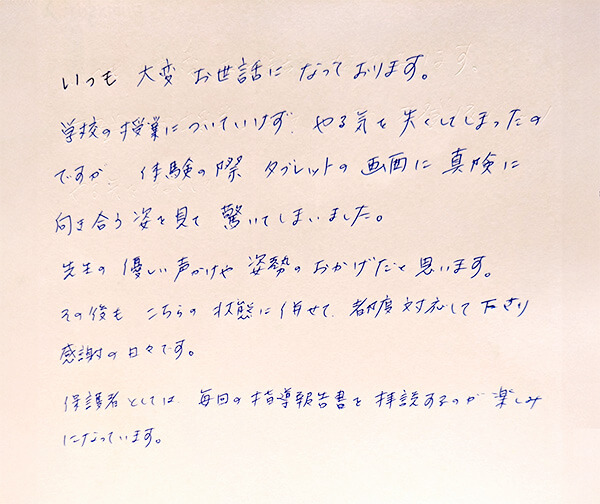 いつも 大変 お世話に なっております。
学校の授業についていけず、やる気を失くしてしまったの
ですが 体験の際 タブレットの画面に真険に
向き合う姿を見て 驚いてしまいました。
先生の優しい声かけや 姿勢のおかげだと思います。
その後も こちらの状態に併せて、都度対応して下さり
感謝の日々です。
保護者としては、毎回の指導報告書を拝読するのが楽しみ
になっています。